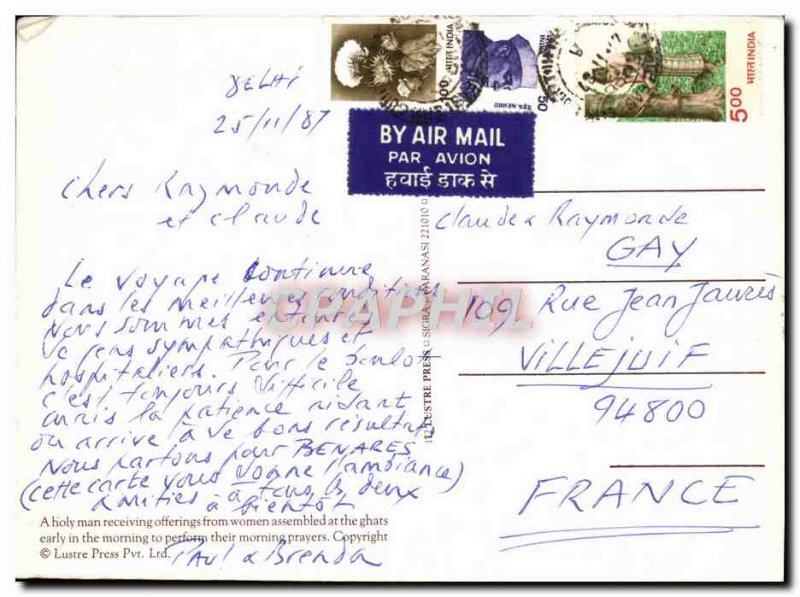 भारत INDIA
भारत INDIA
5.00
50
NEHRU
BY AIR MAIL
PAR AVION
हवाई डाक से
DELHI
25/11/87
Chers Raymonde
et Claude
Le voyage continue
dans les meilleures conditions
Nous sommes entourés
de gens sympathiques et
hospitaliers. Pour le boulot
c'est toujours difficile
mais la patience aidant
on arrive à de bons résultats
Nous partons pour BENARES
(cette carte vous donne l'ambiance)
amitiés à tous les deux
à bientôt
Paul & Brenda
Claude & Raymonde
GAY
109 Rue Jean Jaurès
VILLEJUIF
94800
FRANCE
A holy man receiving offerings from women assembled at the ghats
early in the morning to perform their morning prayers. Copyright
© Lustre Press Pvt. Ltd.
112 LUSTRE PRESS □ SIGRA □ VARANASI 221010
CPAPHIL